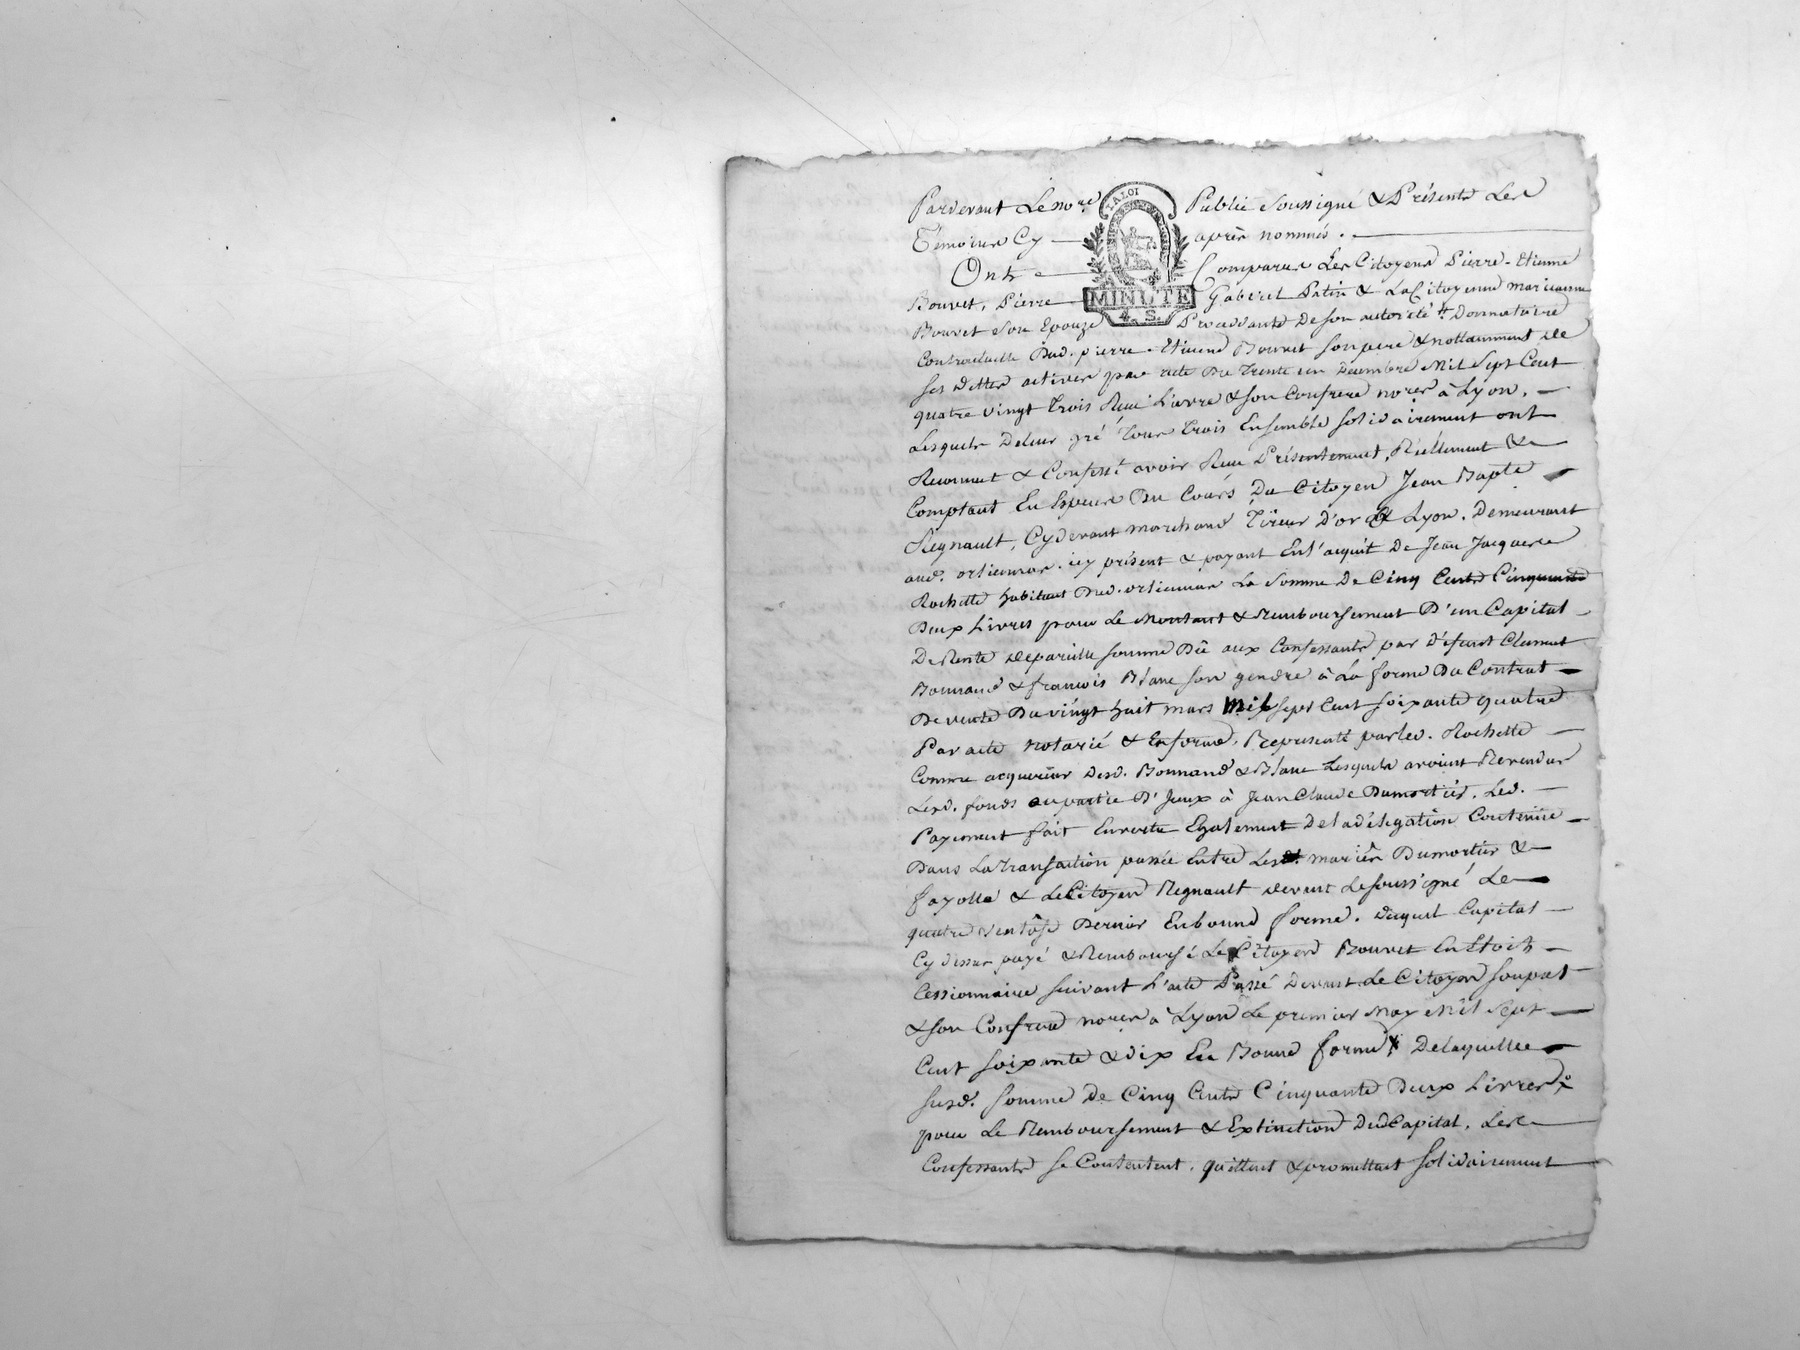 Pardevant Le no.re Public Soussigné & Présents Les
LA LOI
Témoins Cy après nommés.
Ont Comparus Les Citoyens Pierre-Etienne
Bouvet, Pierre Gabriel Patin & La Citoyenne marianne
MINUTE
4. S.
Bouvet Son Epouze Procedante De Son autorité & Donnataire
Contractuelle Dud. pierre-Etienne Bouvet Son pere & nottamment de
Ses dettes actives par acte Du Trente un Decembre Mil Sept Cent
quatre vingt Trois Reçu Lievre & Son Confrere no.res à Lyon,
Lesquels De Leur gré Tous Trois Ensemble Solidairement ont
Reconnut & Confessé avoir Reçu Présentement, Réellement &
Comptant En Espèces Du Cours Du Citoyen Jean Bapte
Regnault, Cydevant marchand Tireur D'or à Lyon, Demeurant
aud. orlienas. icy présent & payant En L'acquit De Jean Jacques
Rochette habitant Dud. orlienas La Somme De Cinq Cents Cinquante
Deux Livres pour Le Montant & Remboursement D'un Capital
De Rente de pareille Somme Dû aux Confessants par Défunt Clement
Bonnand & francois Blanc Son gendre à La forme Du Contrat
De vente Du vingt huit mars Mil Sept Cent Soixante quatre
Par acte notarié & En forme, Representé par Led. Rochette
Comme acquereur Desd. Bonnand & Blanc Lesquels avoient Revendus
Lesd. fonds ou partie D'Iceux à Jean Claude Dumortier. Led.
Payement fait En vertu Egalement De La délégation Contenüe
Dans La Transaction passée Entre Les mariés Dumortier &
fayolle & Le Citoyen Regnault devant Le Soussigné Le
quatre Ventôse Dernier En bonne forme. duquel Capital
Cy dessus payé & Remboursé Le Citoyen Bouvet En Etoit
Cessionnaire Suivant L'acte Passé Devant Le Citoyen Soupat
& Son Confrere no.res à Lyon Le premier May Mil Sept
Cent Soixante & dix En Bonne forme, De Laquelle
Susd. Somme De Cinq Cents Cinquante Deux Livres
pour Le Remboursement & Extinction Dud Capital, Les
Confessants Se Contentent, quittent & promettent Solidairement